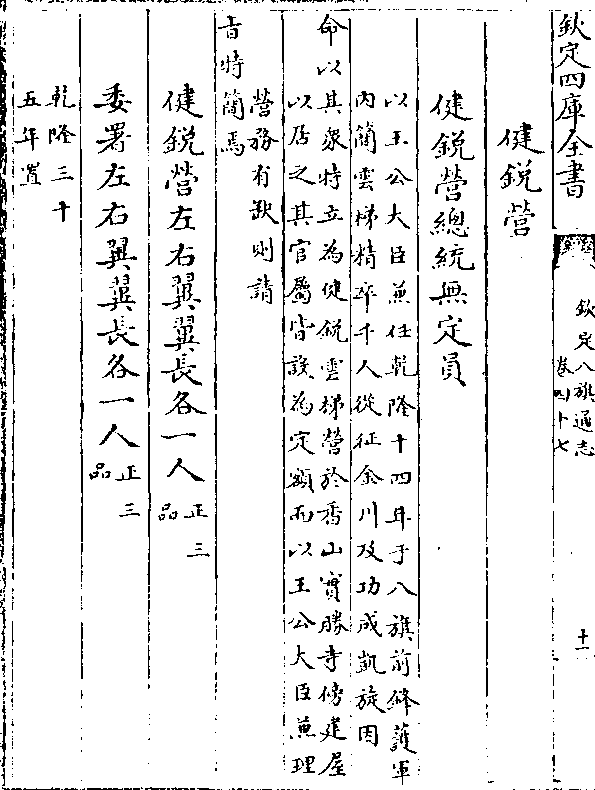 欽定四庫全書
欽定八旗通志
卷四十七
十一
健鋭營
健鋭營總統無定員
以王公大臣兼任乾隆十四年于八旗前鋒護軍
内簡雲梯精卒千人從征金川及功成凱旋因
命以其衆特立為健鋭雲梯營於香山實勝寺傍建屋
以居之其官屬皆設為定額而以王公大臣兼理
營務有缺則請
旨特簡焉
健鋭營左右翼翼長各一人正三品
委署左右翼翼長各一人正三品
乾隆三十
五年置